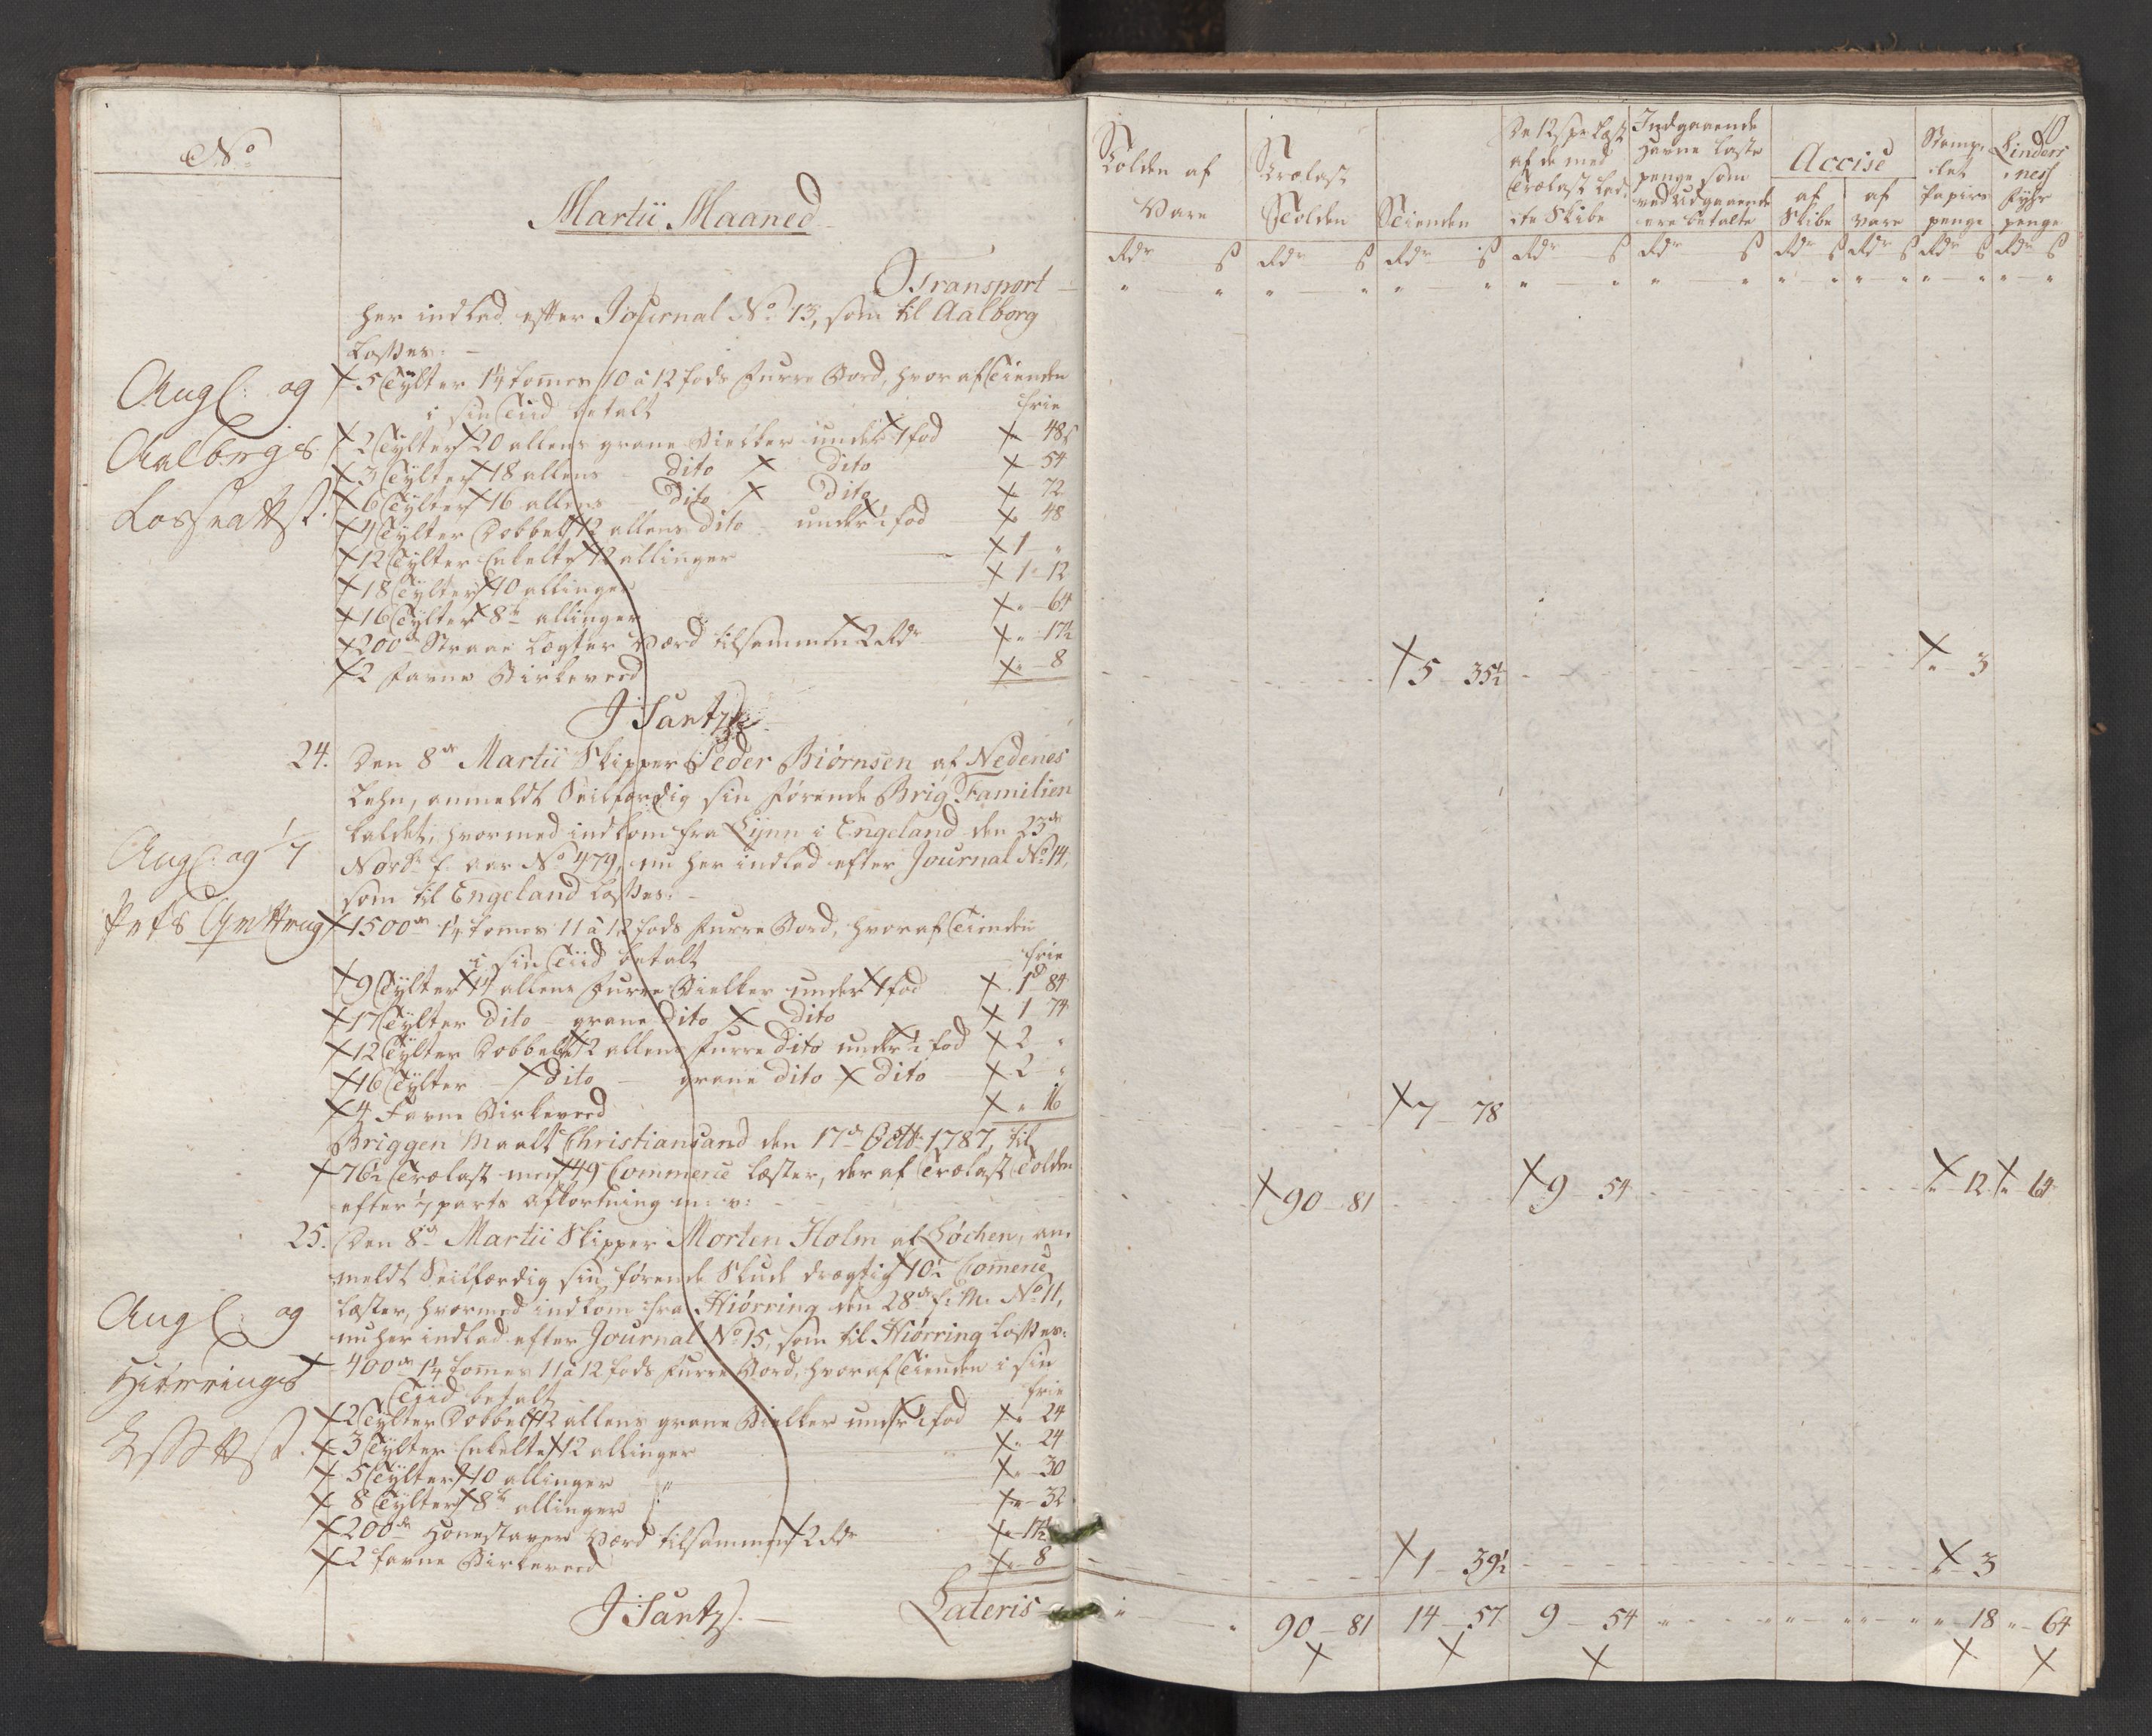 No
Martii Maaned
Transport
her indlad. efter Journal No 13, som til Aalborg
Losses. –
Angl: og
Aalborgs
Lossea Att.
5 Tylter 1¼ tomes 10 a 12 fods furre Bord, hvoraf Tienden
i sin Tiid betalt frie
2 Tylter 20 allens grane Bielker under 1 fod " 48 s
3 Tylter 18 allens dito dito " 54
6 Tylter 16 allens dito dito " 72
4 Tylter Dobbelt 12 allens dito under 1 fod " 48
12 Tylter Enkelte 12 allinger 1 "
18 Tylter 10 allinger 1 - 12
16 Tylter 8te allinger " - 64
200de Straae Lægter Værd tilsammen 2 Rdr " - 17½
2 Favne Birkeveed " - 8
J Santz
24. Den 8de Martii Skipper Peder Biørnsen af Nedenes
Lehn, anmeldt Seilfærdig sin førende Brig Familien
kaldet, hvormed indkom fra Lynn i Engeland den 23de
Novbr f. aar No 479, nu her indlad efter Journal No 14,
som til Engeland Losses. –
Angl: og 1/7
1500de 1¼ tomes 11 a 12 fods furre Bord, hvoraf Tienden
i sin Tiid betalt frie
9 Tylter 14 allens Furre Bielker under 1 fod 1 d 84
17 Tylter dito - grane dito dito 1 74
12 Tylter Dobbelt 12 allens furre dito under 1 fod 2 "
16 Tylter - dito - grane dito dito 2 "
4 Favne Birkeveed " 16
Briggen Maalt Christiansand den 17de Octbr 1787, til
76½ Trælast men 49 Commerce læster, der af Trælast Tolden
efter 1/7 parts afkortning m: v:
25. Den 8de Martii Skipper Morten Holm af Løchen, an-
meldt Seilfærdig sin førende Skude drægtig 10½ Commerce
Læster, hvormed indkom fra Hiørring den 28de f: M: No 11,
nu her indlad efter Journal No 15, som til Hiørring Losses.
Angl: og
Hiørrings
Att.
400de 1¼ tomes 11 a 12 fods furre Bord, hvoraf Tienden i sin
Tiid betalt frie
2 Tylter Dobbelt 12 allens grane Bielker under 1 fod " - 24
3 Tylter Enkelte 12 allinger " - 24
5 Tylter 10 allinger " - 30
8 Tylter 8te allinger " - 32
200de Honestaver Værd tilsammen 2 Rdr " - 17½
2 favne Birkeveed " - 8
J Santz.
Lateris
10
Tolden af Vare
Trælast Tolden
Tienden
De 12 s pr Læst af de med Trælast lad- ete Skibe
Indgaaende Havne Laste penge som ved Udgaaende ere betalte
Accise
af Skibe
af Vare
Stemp- let Papirs penge
Linders- ness Fyhr penge
Rdr s Rdr s Rdr s Rdr s Rdr s Rdr s Rdr s Rdr s Rdr s
5 35½ " 3
7 - 78
90 - 81 9 54 " 12 " 64
1 - 39½ " 3
" " 90 - 81 14 - 57 9 - 54 " " " " " " " 18 " 64